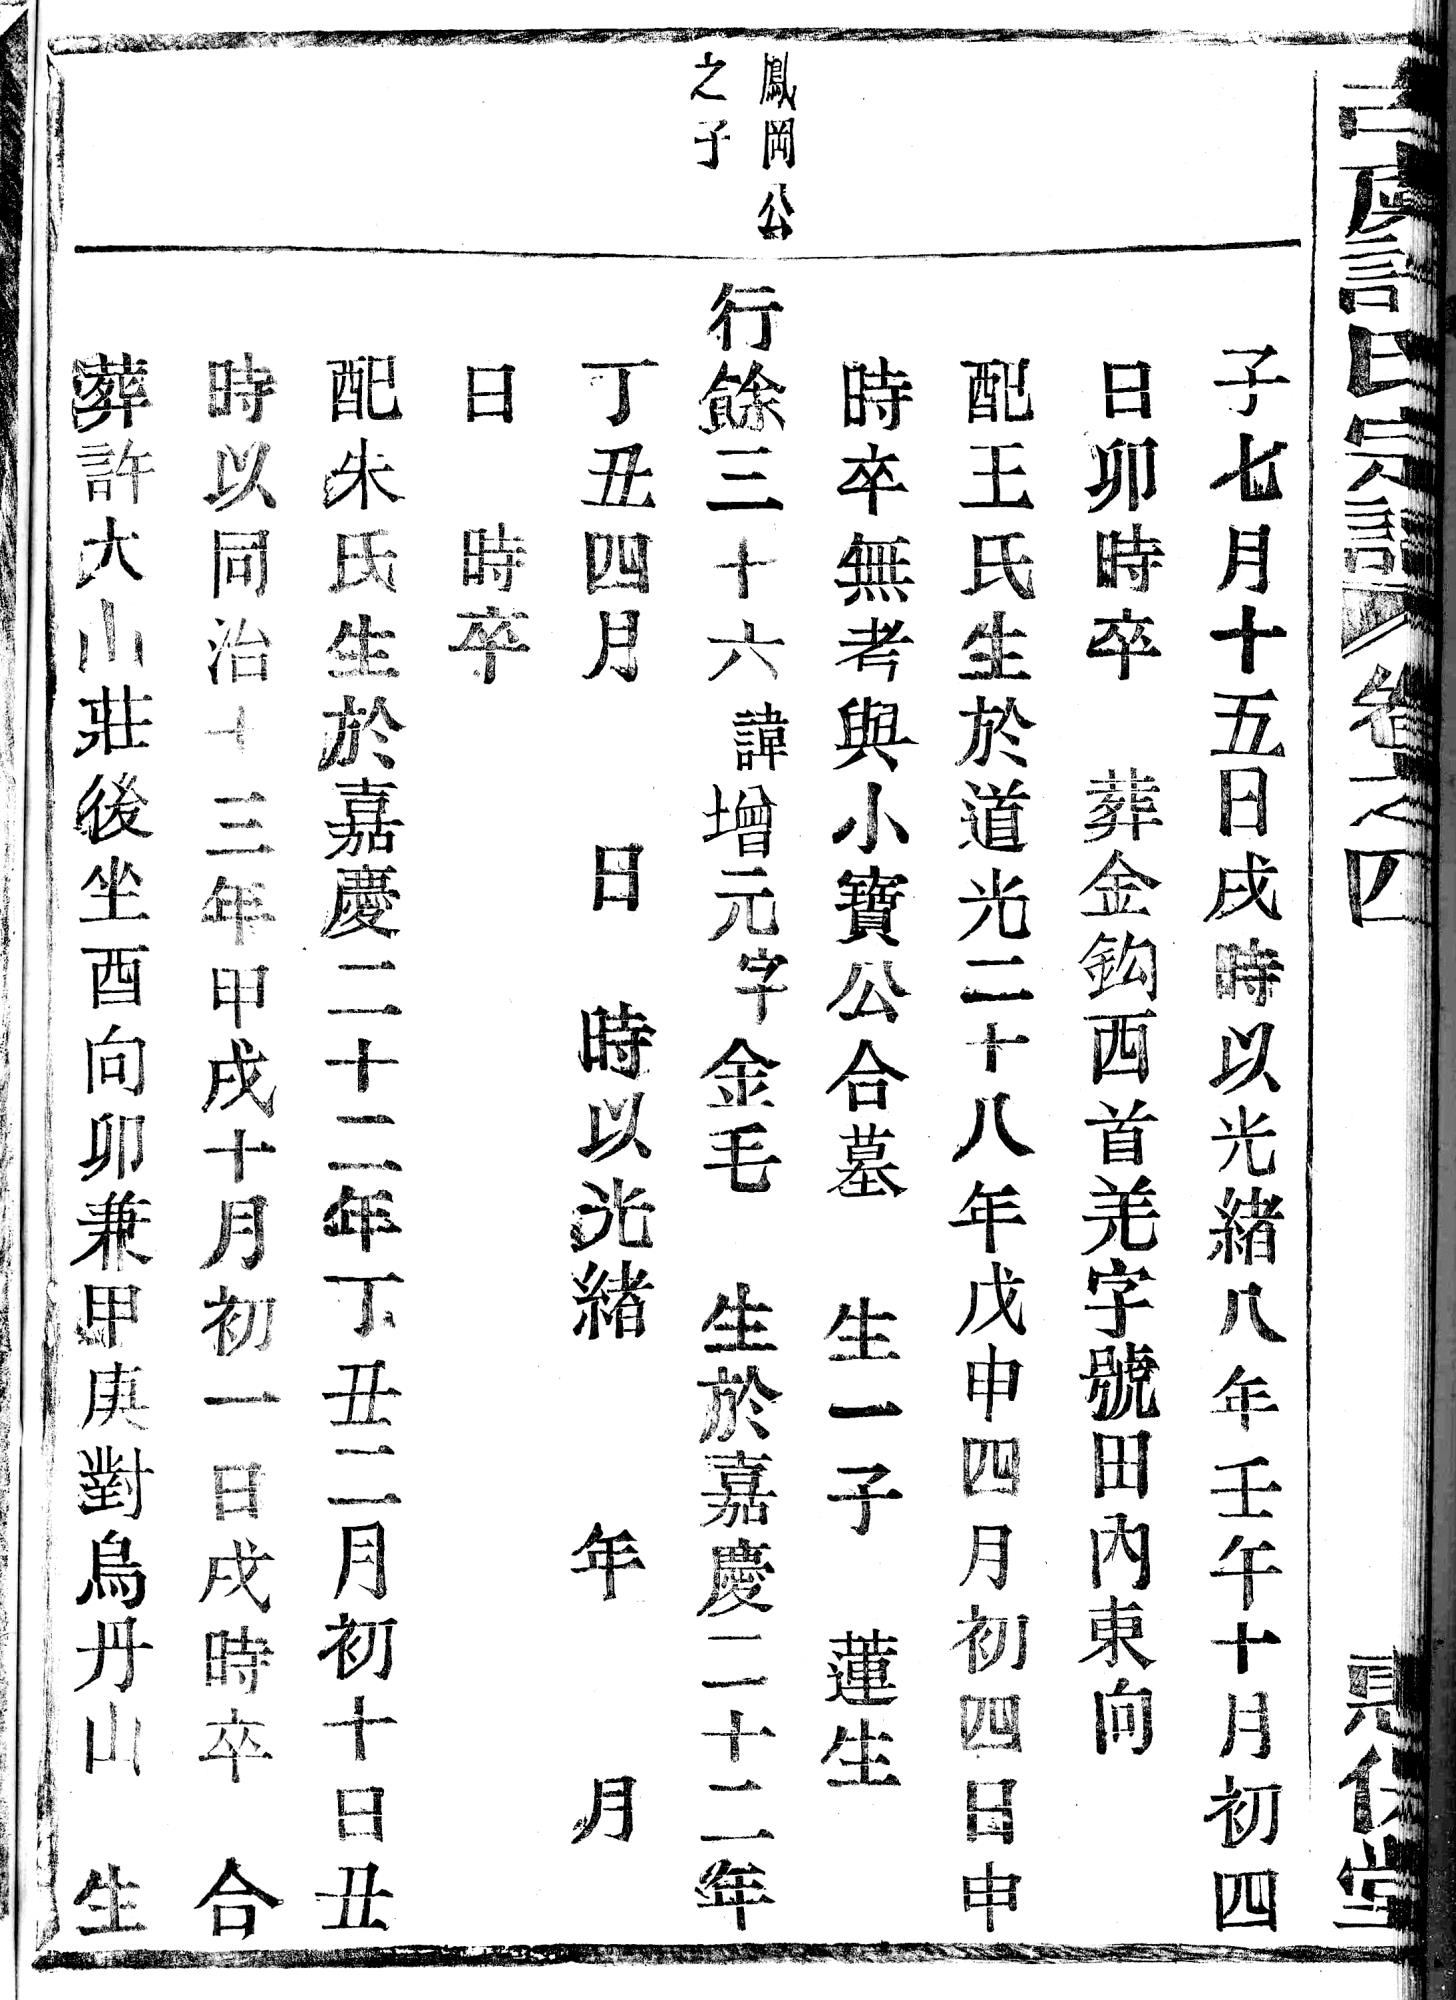 許氏宗譜 卷之四 堂
子七月十五日戌時以光緒八年壬午十月初四
日卯時卒 葬金鈎西首羌字號田內東向
配王氏生於道光二十八年戊申四月初四日申
時卒無考與小寶公合墓 生一子 蓮生
鳳岡公
之子
行餘三十六諱增元字金毛 生於嘉慶二十二年
丁丑四月 日 時以光緒 年 月
日 時卒
配朱氏生於嘉慶二十二年丁丑二月初十日丑
時以同治十三年甲戌十月初一日戌時卒 合
葬許大山莊後坐酉向卯兼甲庚對烏丹山 生